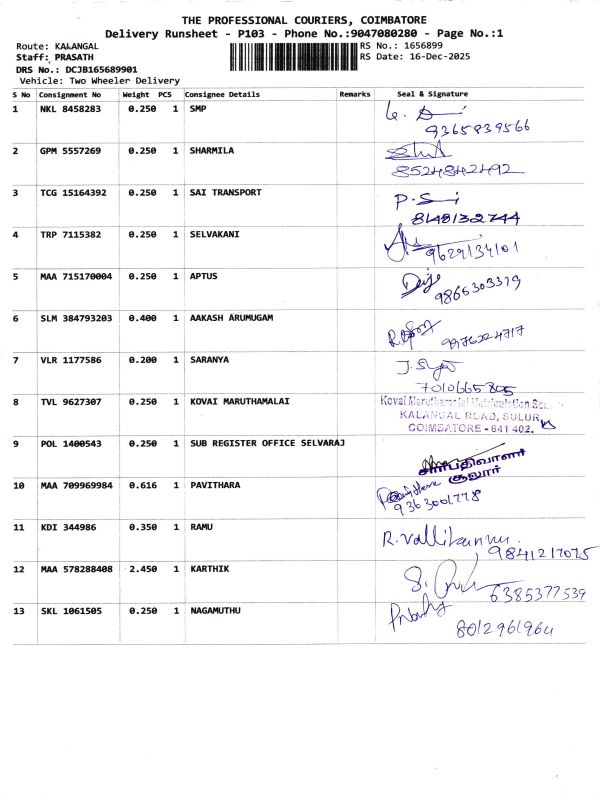 THE PROFESSIONAL COURIERS, COIMBATORE
Delivery Runsheet - P103 - Phone No.:9047080280 - Page No.:1
Route: KALANGAL
RS No.: 1656899
Staff: PRASATH
RS Date: 16-Dec-2025
DRS No.: DCJB165689901
Vehicle: Two Wheeler Delivery
S No Consignment No Weight PCS Consignee Details Remarks Seal & Signature
1 NKL 8458283 0.250 1 SMP
9365839566
2 GPM 5557269 0.250 1 SHARMILA
8524842492
3 TCG 15164392 0.250 1 SAI TRANSPORT
8148132744
4 TRP 7115382 0.250 1 SELVAKANI
9629134101
5 MAA 715170004 0.250 1 APTUS
9865303319
6 SLM 384793203 0.400 1 AAKASH ARUMUGAM
9976224717
7 VLR 1177586 0.200 1 SARANYA
7010665805
8 TVL 9627307 0.250 1 KOVAI MARUTHAMALAI
KALANGAL ROAD, SULUR,
COIMBATORE - 641 402.
9 POL 1400543 0.250 1 SUB REGISTER OFFICE SELVARAJ
சார்பதிவாளர்
சூலூர்
10 MAA 709969984 0.616 1 PAVITHARA
9363001778
11 KDI 344986 0.350 1 RAMU
R. Vallikannu.
9841217075
12 MAA 578288408 2.450 1 KARTHIK
6385377539
13 SKL 1061505 0.250 1 NAGAMUTHU
8012961964